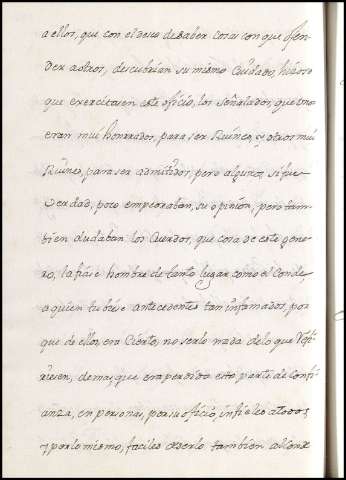 a ellos, que con el deseo de saber cosas con que ofen
der a otros, descubrian su mismo Cuidado, hiços
que exercitasen este oficio, los señalados, que uno
eran mui honrrados, para ser Ruines, y otros mui
Ruines, para ser admitidos, pero algunos, si fue
Verdad, poco empeoraban, su opinion, pero tam
bien dudaban los Cuerdos, que cosa de este gene
ro, la fiase hombre de tanto lugar como el Conde,
a quien tubiese antecedentes tan infamados, por
que de ellos, era Cierto, no serlo nada de lo que Refi
riesen, demas, que era perdida esta parte de Confi
anza, en personas, por su oficio, infieles a todos
y por lo mismo, faciles a serlo tambien al